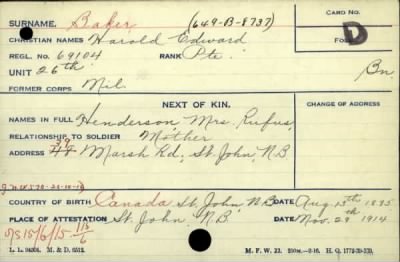 SURNAME. Baker (649-B-8737) CARD NO.
CHRISTIAN NAMES Harold Edward FOL. D
REGL. NO. 69104 RANK Pte.
UNIT 26th. Bn.
FORMER CORPS Nil.
NEXT OF KIN. CHANGE OF ADDRESS
NAMES IN FULL Henderson Mrs. Rufus,
RELATIONSHIP TO SOLDIER Mother
39
ADDRESS Marsh Rd, St. John, N.B.
COUNTRY OF BIRTH Canada St. John N.B. DATE Aug. 13th 1895
PLACE OF ATTESTATION St. John, N.B. DATE Nov. 29th 1914
O/S 15/6/15
L. L. 94301. M. & D. 6512. M. F. W. 22. 250M.-2-16. H. Q. 1772-39-339.